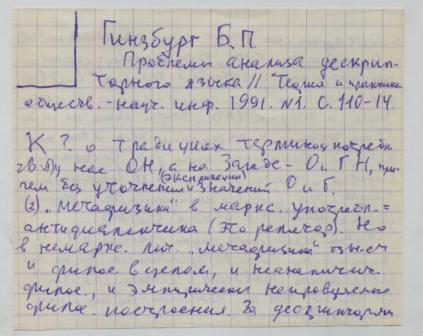 Гинзбург Б.П
Проблемы анализа дескрип-
торного языка // Теория и практика
обществ.-науч. инф. 1991. N1. С. 110-14.
К ? о традициях терминоупотребл
у нас ОН, а на Западе - О и ГН, при-
чем без уточнения (экспликации) значений О и Г.
(2) "метафизика" в маркс. употребл. =
антидиалектика (Это репетар). Но
в немаркс. лит. "метафизика"
и филос в целом, и неаналитич.
филос., и эмпирически непроверяемые
филос. построения. За дескрипторами